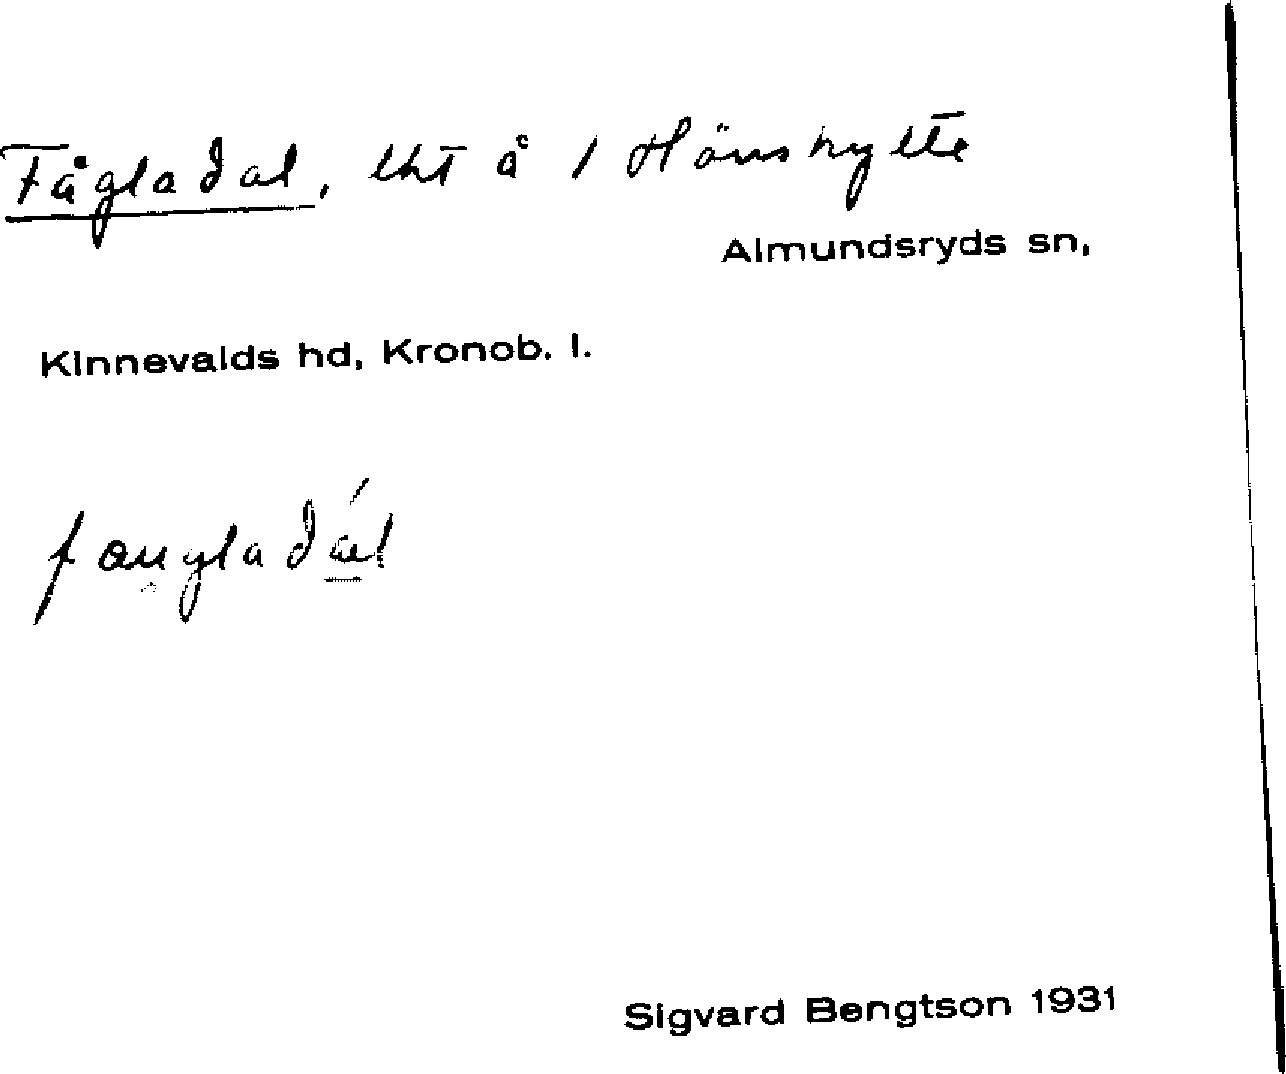 Fågladal, lht å 1 Hönshylte
Almundsryds sn,
Kinnevalds hd, Kronob. l.
faugladál
Sigvard Bengtson 1931